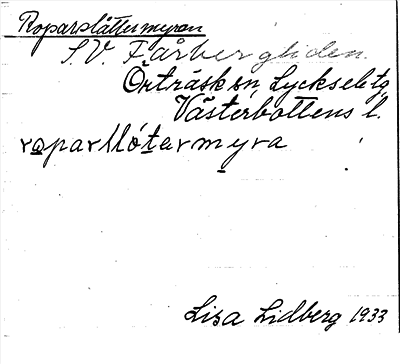 Roparslåttermyran
S.V. Fårbergliden.
Örträsk sn, Lycksele tg,
Västerbottens l.
roparslåtarmyra
Lisa Lidberg 1933